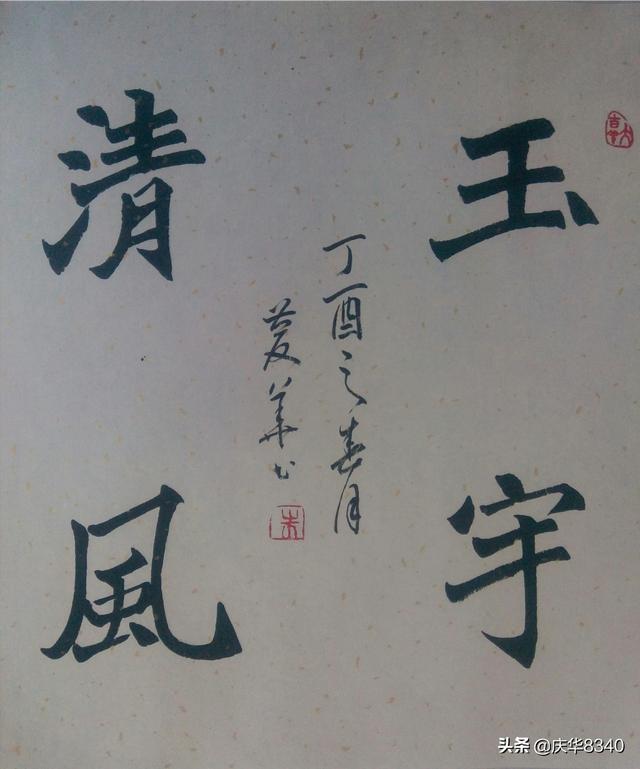 玉宇
清風
丁酉之春月
慶華书
朱
头条 @庆华8340